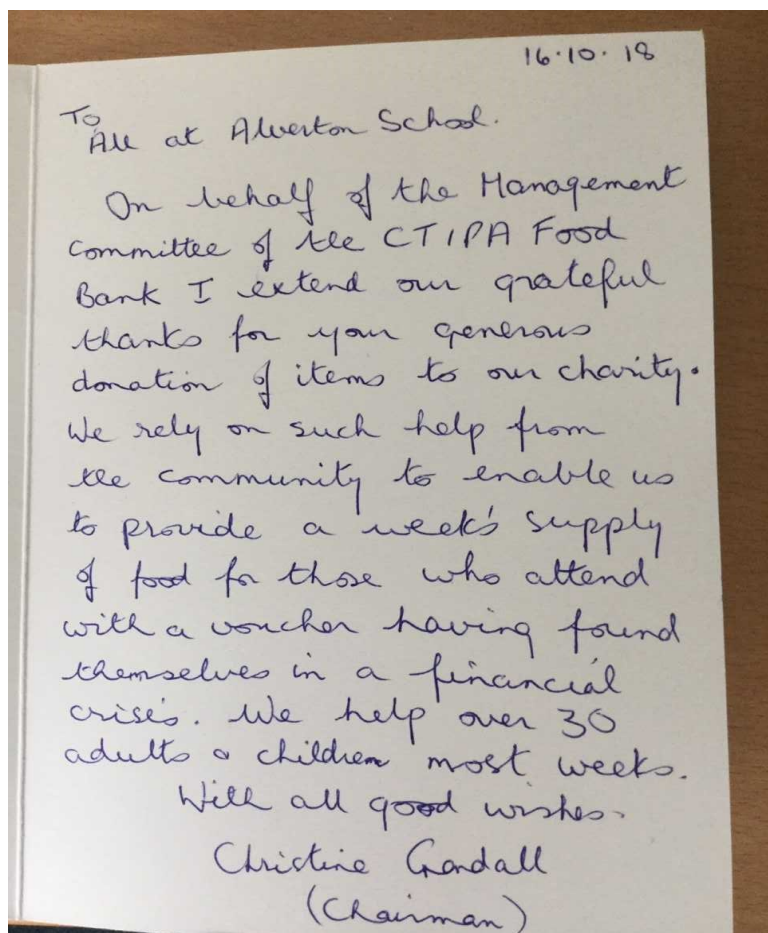 16.10.18
To
All at Alverton School.
On behalf of the Management
Committee of the CTIPA Food
Bank I extend our grateful
thanks for your generous
donation of items to our charity.
We rely on such help from
the community to enable us
to provide a week's supply
of food for those who attend
with a voucher having found
themselves in a financial
crisis. We help over 30
adults & children most weeks.
With all good wishes.
Christine
(Chairman)